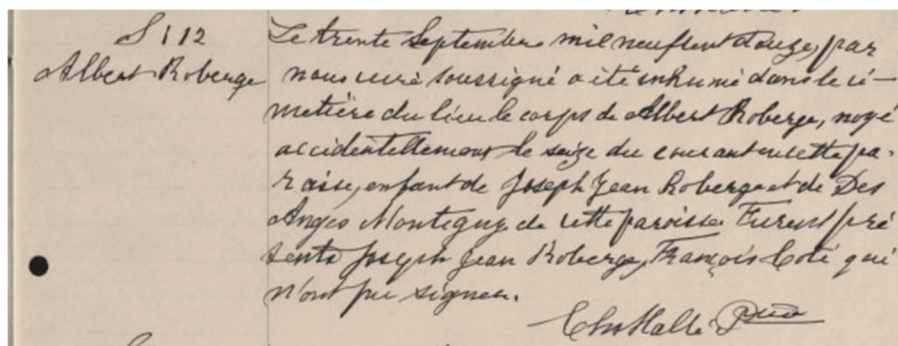 S 112
Albert Roberge
Le trente Septembre mil neuf cent douze, par
nous curé soussigné a été inhumé dans le ci-
metière du lieu le corps de Albert Roberge, noyé
accidentellement le seize du courant en cette pa-
roisse, enfant de Joseph Jean Roberge et de Des
Anges Montigny de cette paroisse. Furent pré
sents Joseph Jean Roberge, François Coté qui
n'ont pu signer.
Ptre